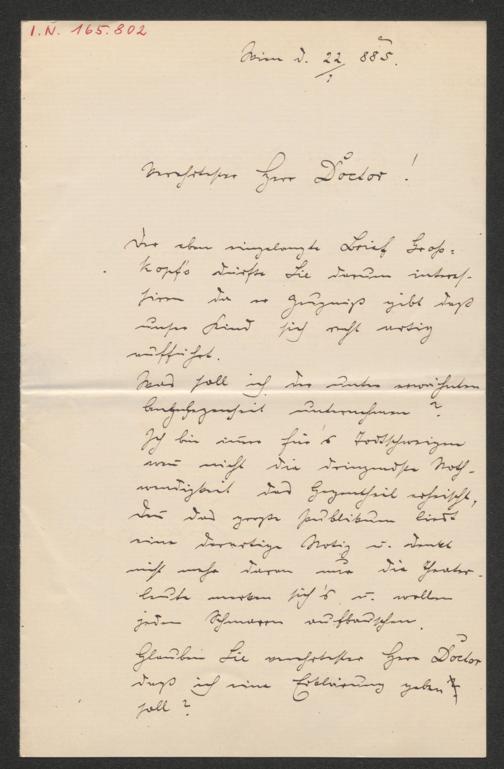 I.N. 165.802
Wien d. 22/1 885.
Verehrtester Herr Doctor!
Der eben eingelangte Brief Groß=
kopf's dürfte Sie darum interes=
siren da er Zeugniß gibt daß
unser Kind sich recht artig
aufführt.
Was soll ich der unten erwähnten
unternehmen?
Ich bin immer für's Todtschweigen
wenn nicht die dringendste Noth=
wendigkeit das Gegentheil erheischt,
denn das große Publikum liest
eine derartige Notiz u. denkt
nicht mehr daran nur die Theater=
leute merken sich's u. wollen
jeden Schmarrn aufbauschen.
Glauben Sie verehrtester Herr Doctor
daß ich eine Erklärung geben
soll?